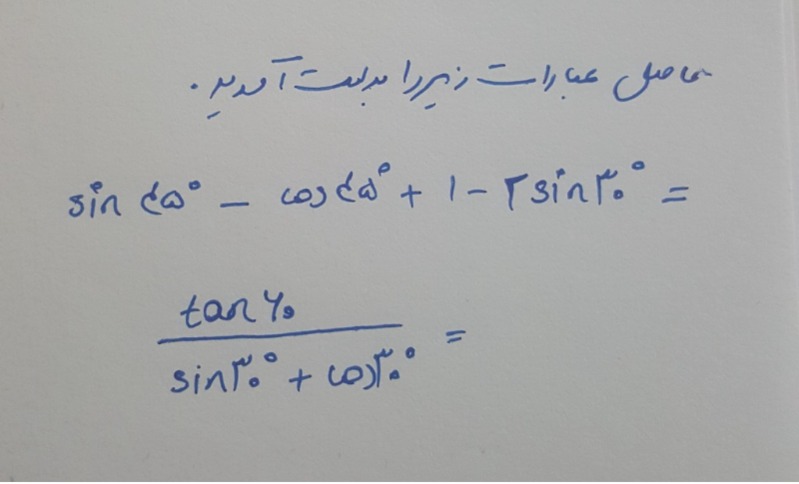 حاصل عبارات زیر را بدست آورید.
sin ۴۵° - cos ۴۵° + ۱ - ۲ sin ۳۰° =
tan ۶۰
sin ۳۰° + cos ۳۰° =